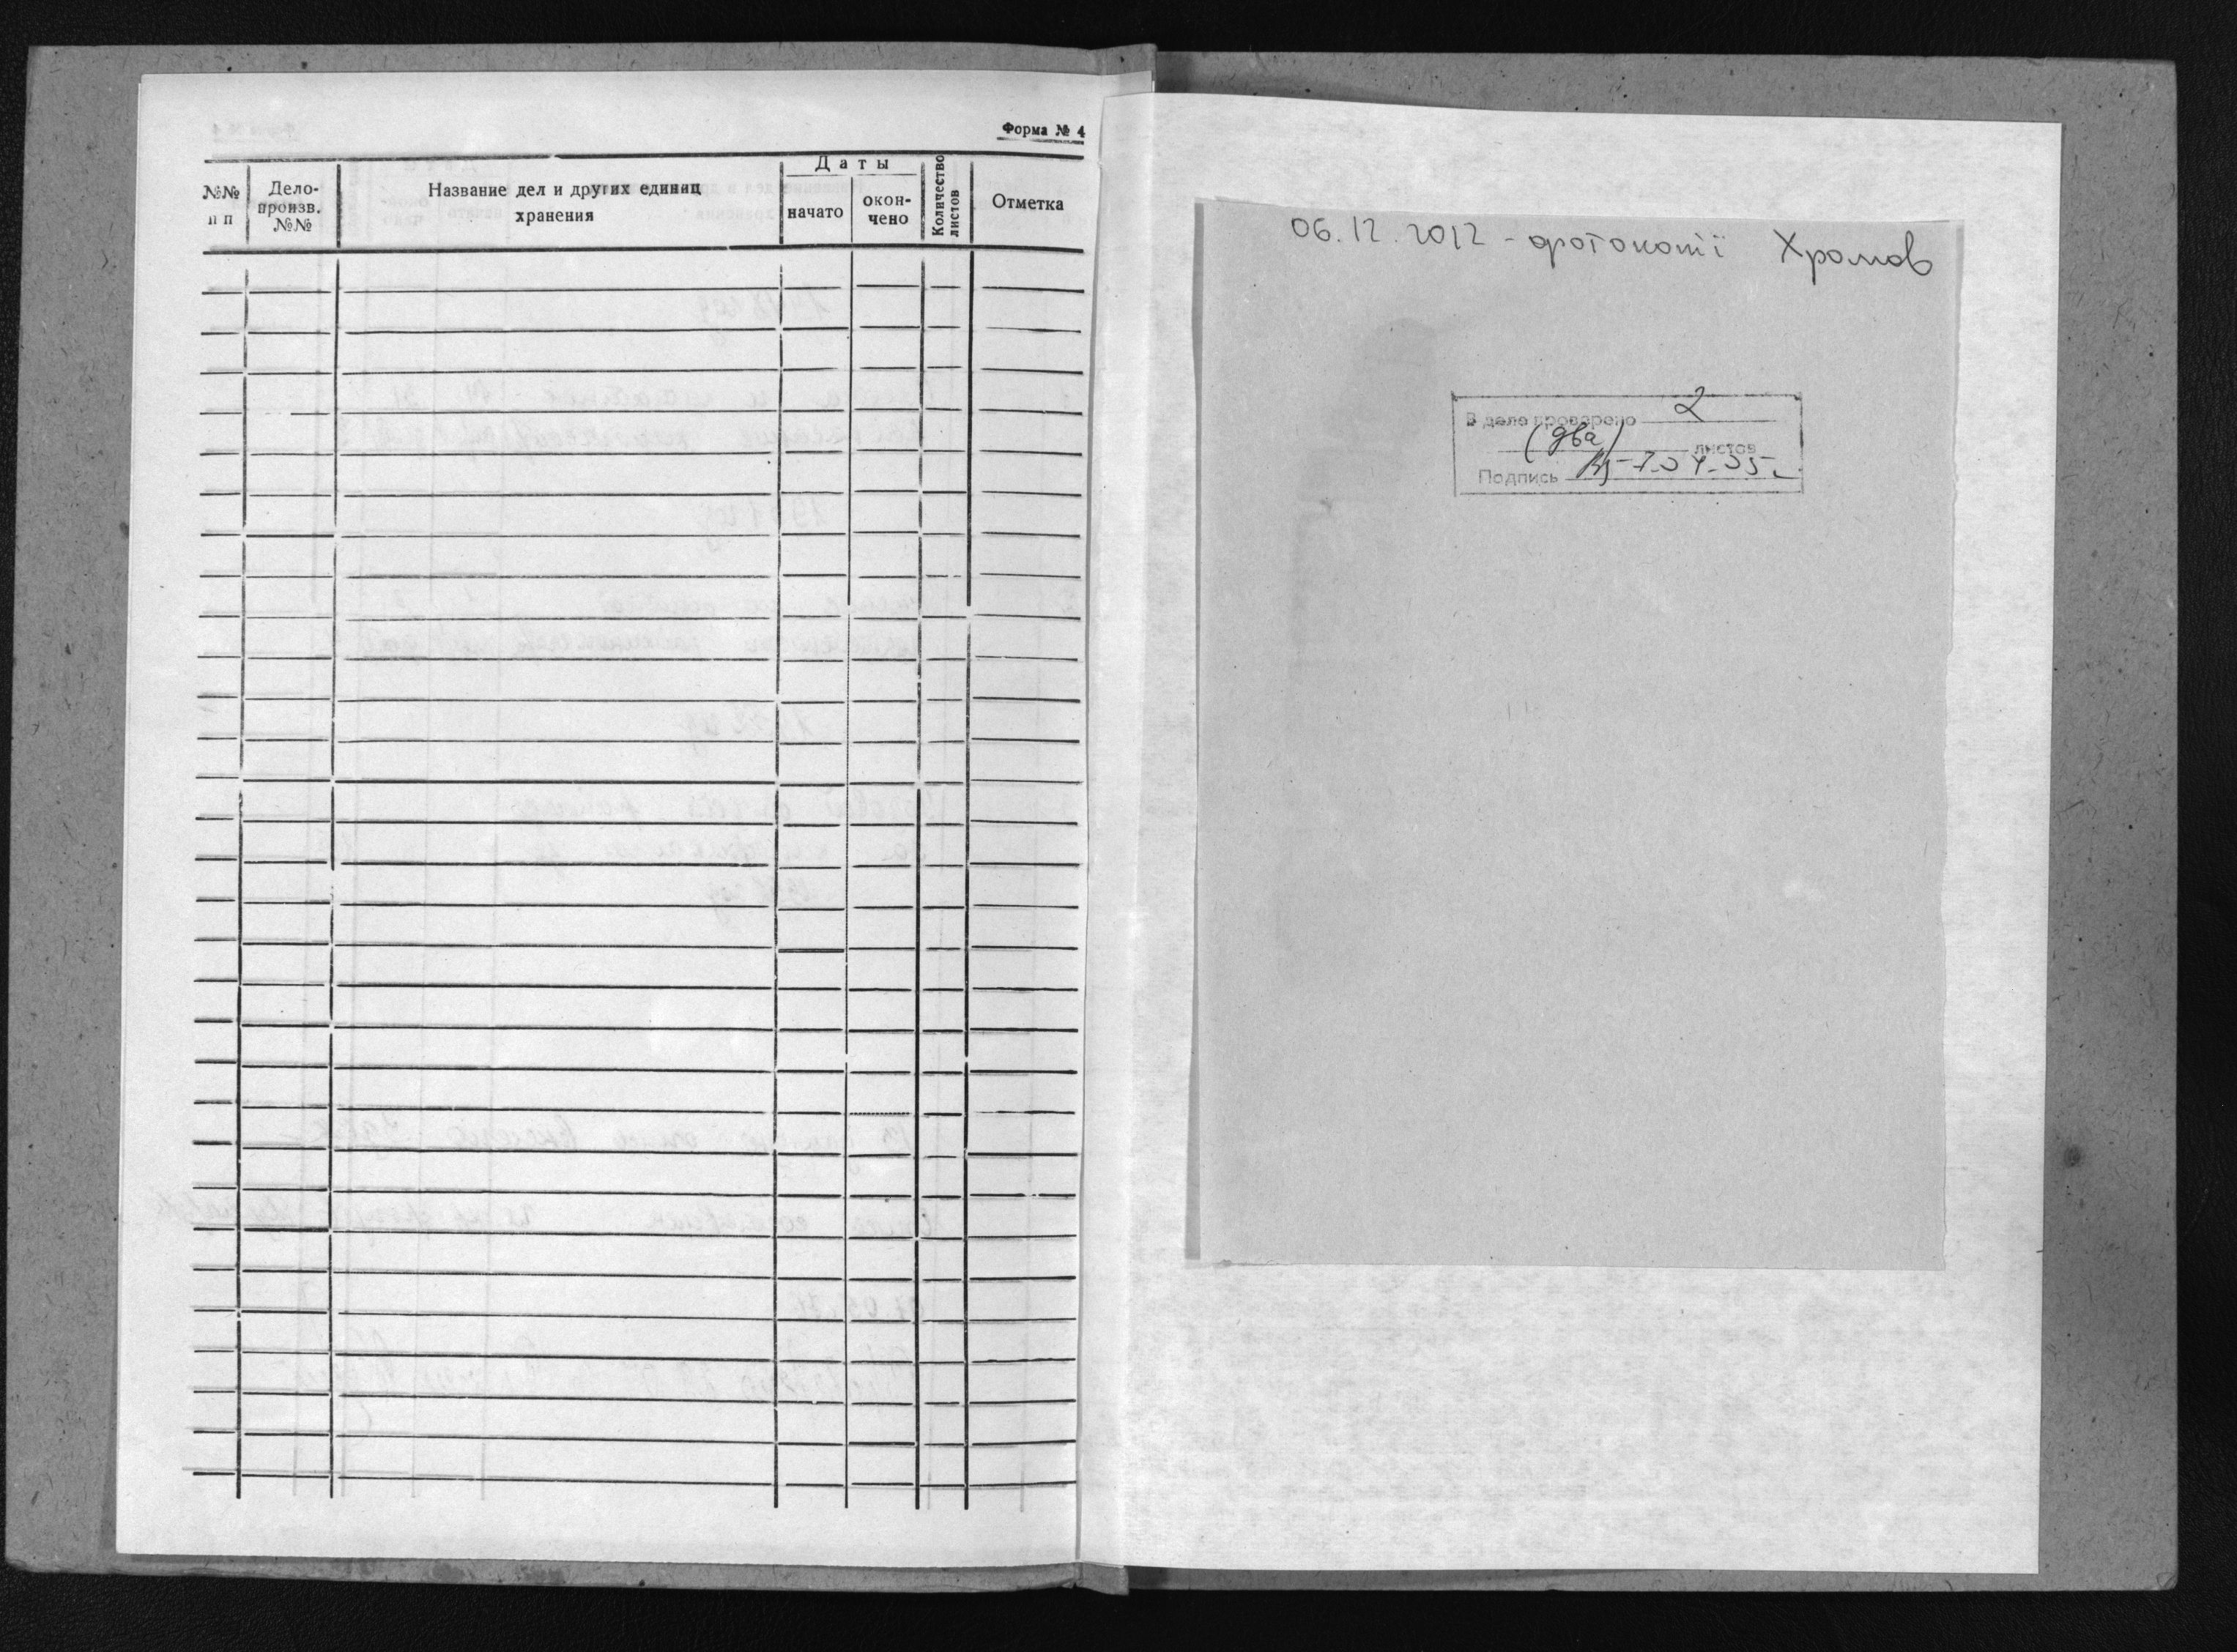 Форма № 4
№№ п п
Дело-
произв.
№№
Название дел и других единиц
хранения
Даты
начато
окон-
чено
Количество
листов
Отметка
06.12.2012 - фотокопії Храмов
В деле проверено 2
(два) листов
Подпись